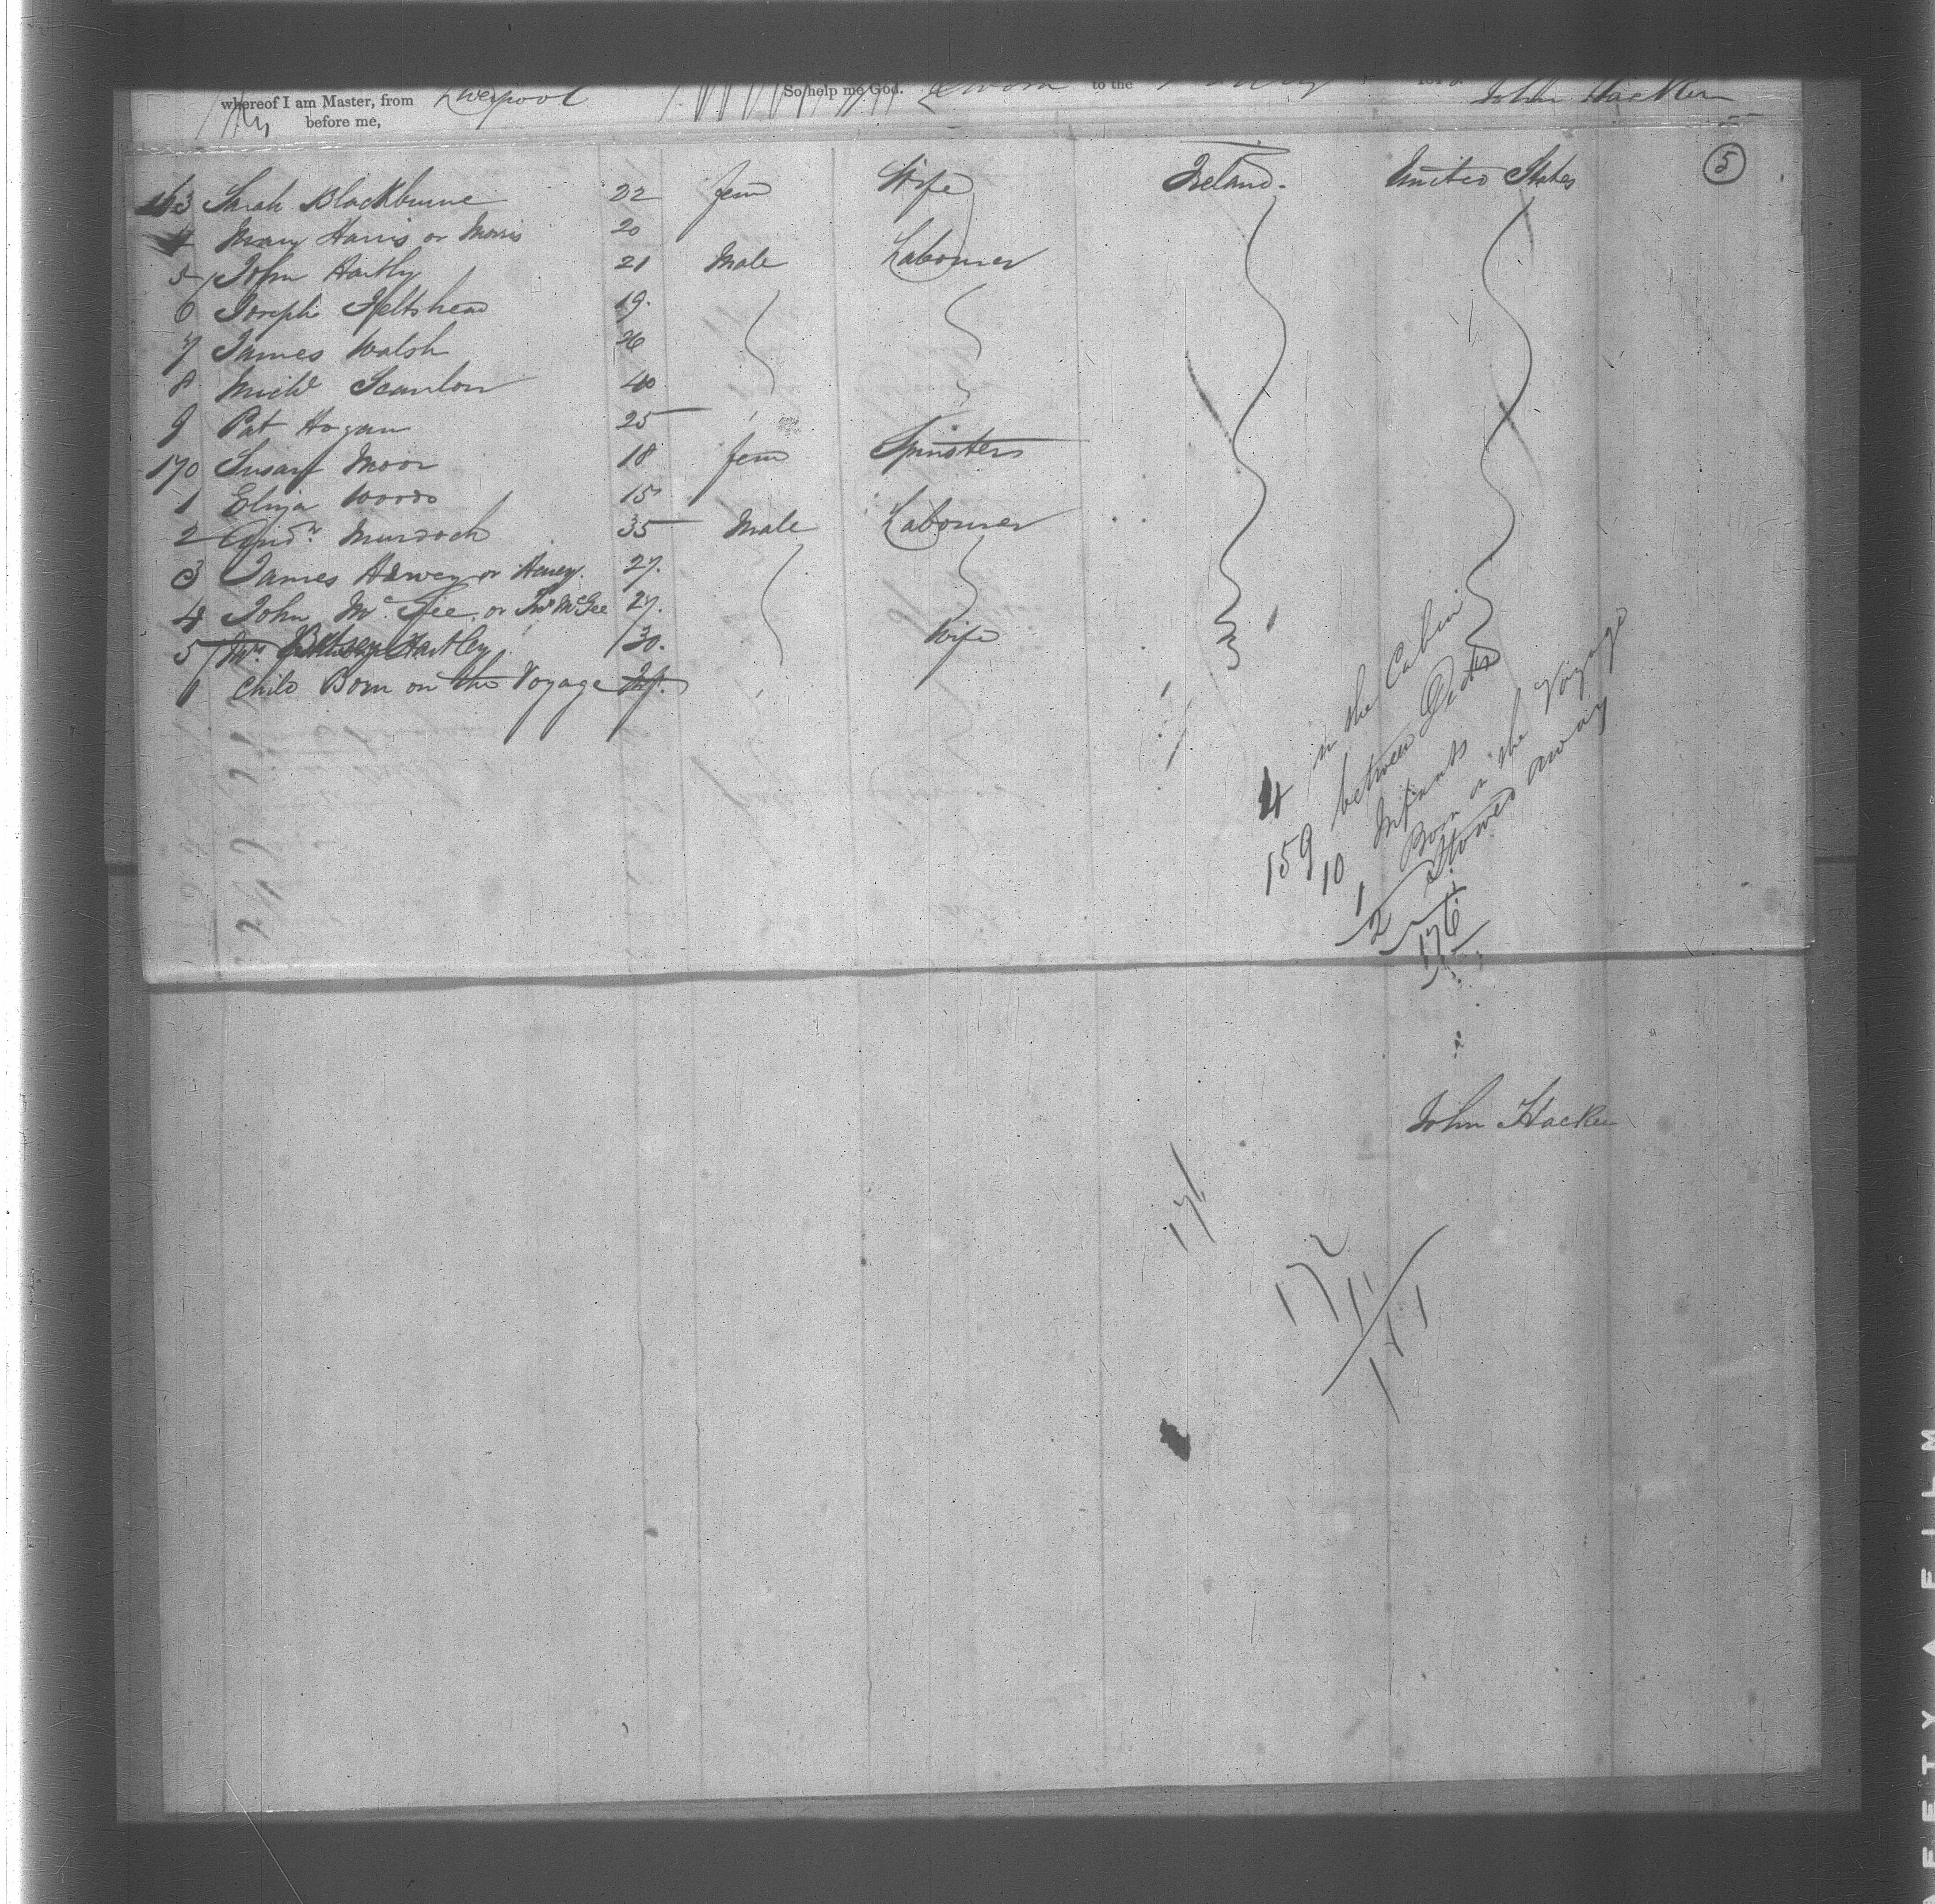 So help me God. to the
whereof I am Master, from Liverpool John Hacker
before me,
5
163 Sarah Blackburne 22 fem Wife Ireland. United States
4 Mary Harris or Morris 20
5 John Hartly 21 Male Labourer
6 Joseph Heltshead 19.
7 James Walsh 26
8 Michl Scanlon 40
9 Pat Hogan 25
170 Susan Moor 18 fem Spinster
1 Eliza Woods 15
2 Andw Murdoch 35 Male Labourer
3 James Harvey or Heney. 27.
4 John Mc Gee or Jno McGee 27.
5 Mrs Hartley 30. Wife
1 Child Born on the Voyage Inf.
4 in the Cabin
159 between Decks
10 Infants
1 Born on the Voyage
2 Stowed away
176
John Hacker
171
172
11
181
SAFETY FILM